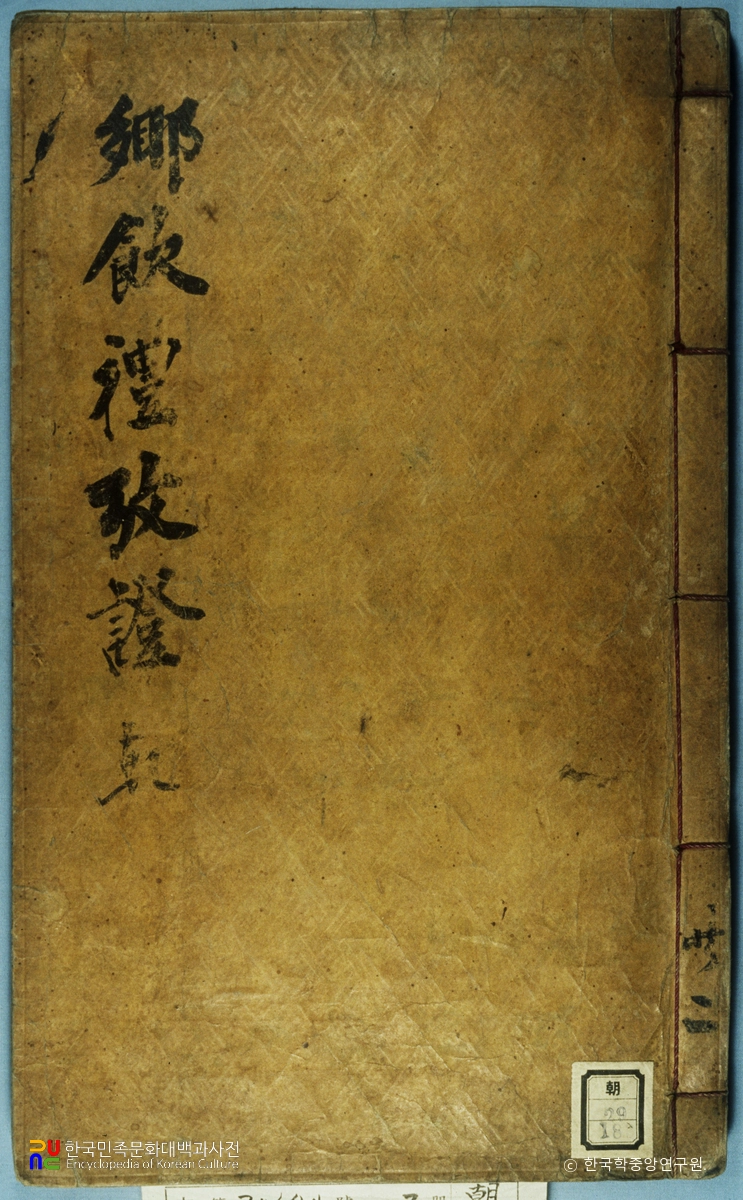 鄕飮禮攷證 乾
共二
朝
29
18
한국민족문화대백과사전
Encyclopedia of Korean Culture
© 한국학중앙연구원
朝